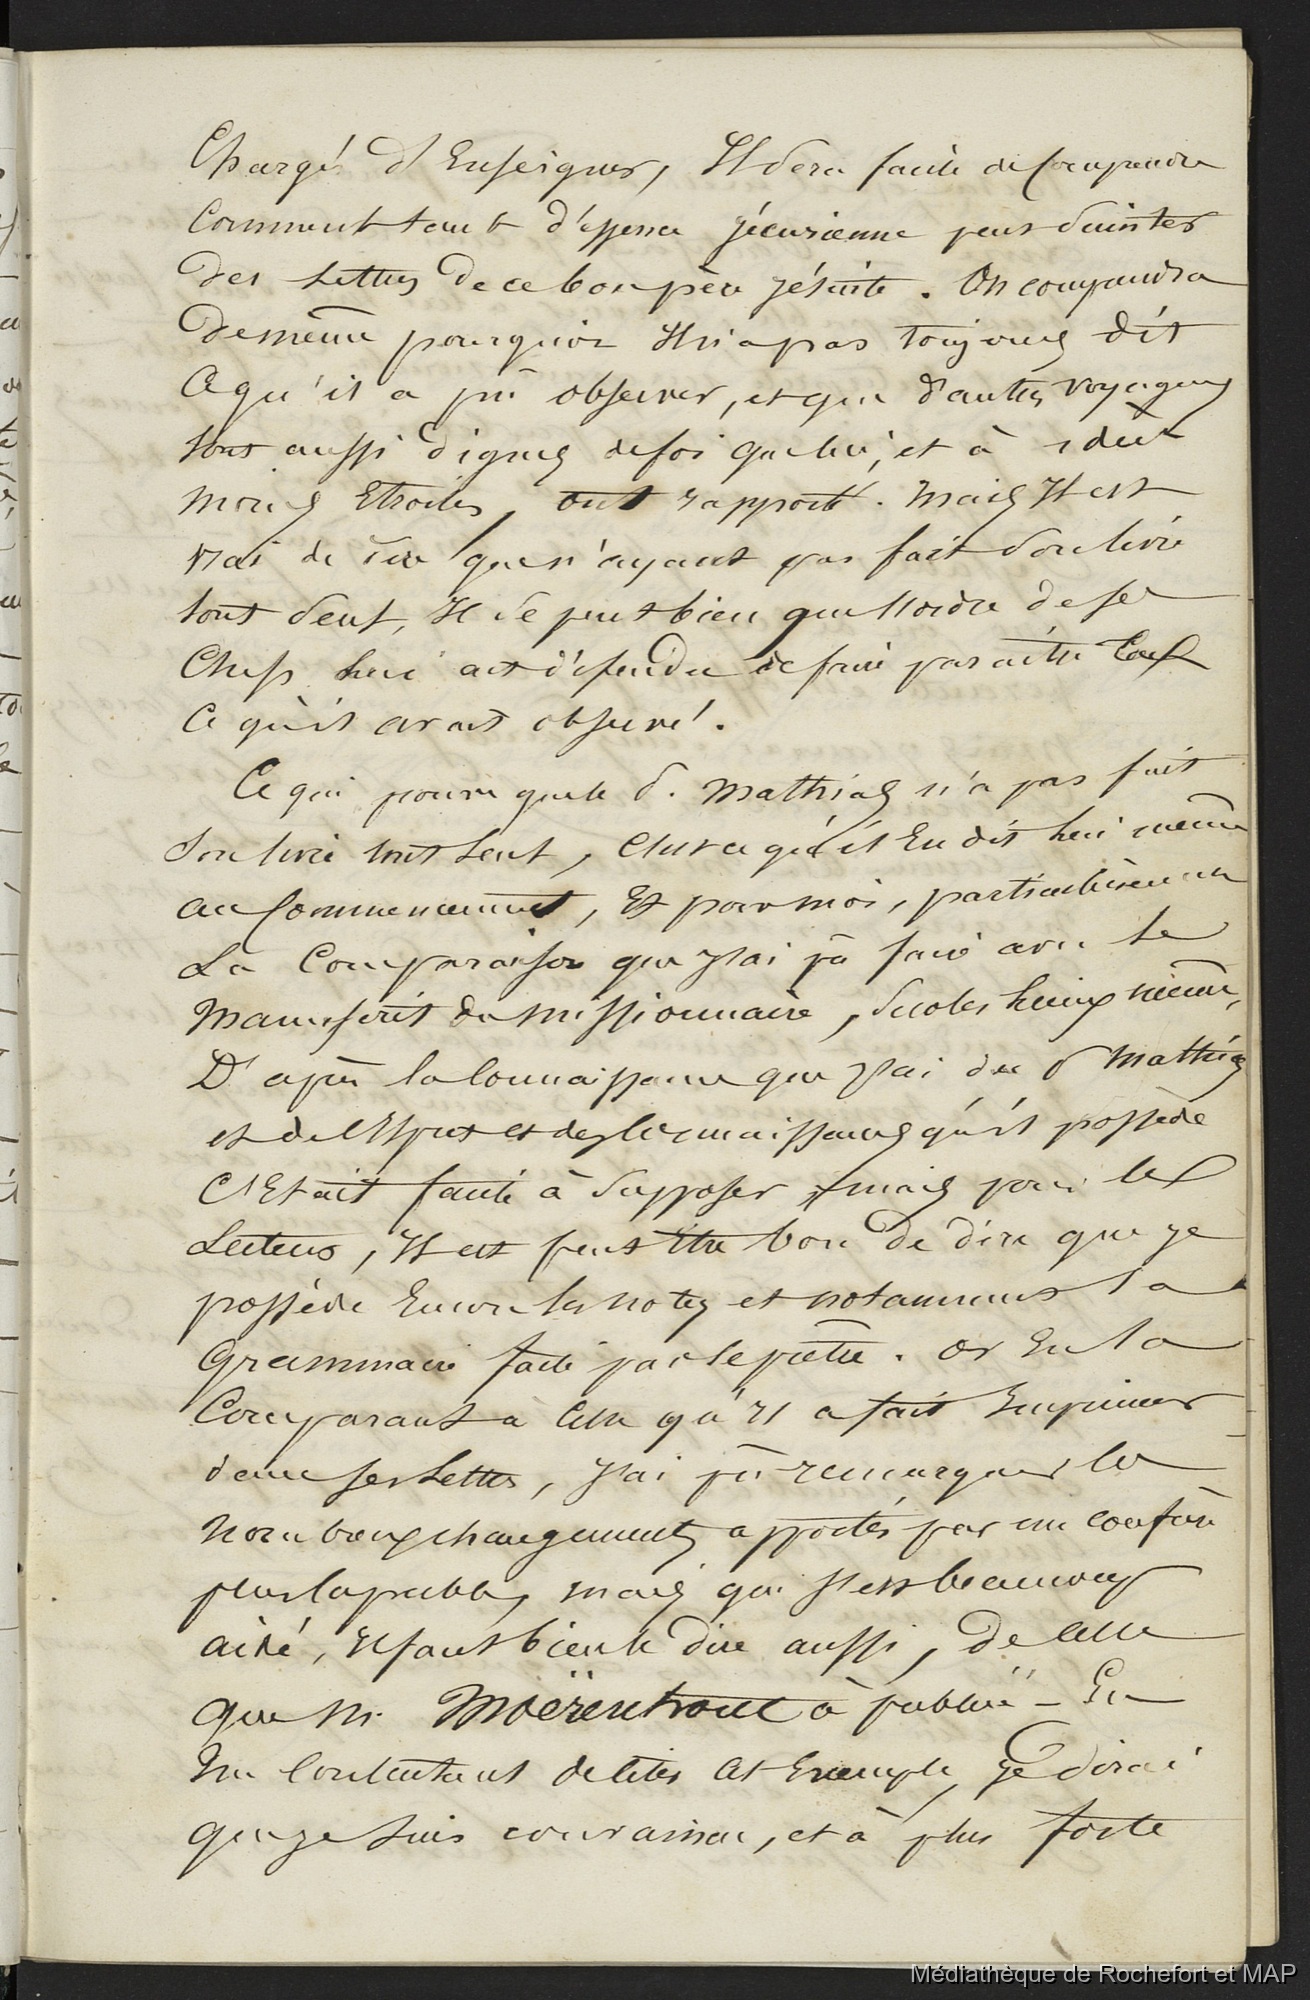 Chargé d'Enseigner, Il sera facile de comprendre
Comment tant d'essence jésusienne peut suinter
des Lettres de ce bon père jésuite. On comprendra
de même pourquoi Il n'a pas toujours dit
ce qu'il a pu observer, et que d'autres voyageurs
tout aussi dignes de foi que lui, et à idées
moins Etroites, ont rapporté. Mais Il est
vrai de dire que n'ayant pas fait son livre
tout seul, Il se peut bien que l'ordre de ses
Chefs lui ait défendu de faire paraître tout
ce qu'il avait observé.
Ce qui prouve que le d. Mathias n'a pas fait
son livre tout seul, c'est ce qu'il En dit lui même
au Commencement, Et pour moi, particulièrement
La Comparaison que j'ai pu faire avec le
manuscrit du missionnaire,
D'après la Connaissance que j'ai du d Mathias
et de l'Esprit et des Connaissances qu'il possède
C'Etait facile à supposer, mais pour les
Lecteurs, Il est peut être bon de dire que je
possède Encore les notes et notamment la
Grammaire faite par le prêtre. Or En la
Comparant à Celle qu'Il a fait Imprimer
dans ses Lettres, j'ai pu remarquer les
nombreux changements apportés par un confrère
plus Capable, mais qui s'est beaucoup
aidé, Il faut bien le dire aussi, de celle
que M. Moërenhout à publié - En
me Contentant de citer cet Exemple, je dirai
que je suis convaincu, et à plus forte
Médiathèque de Rochefort et MAP